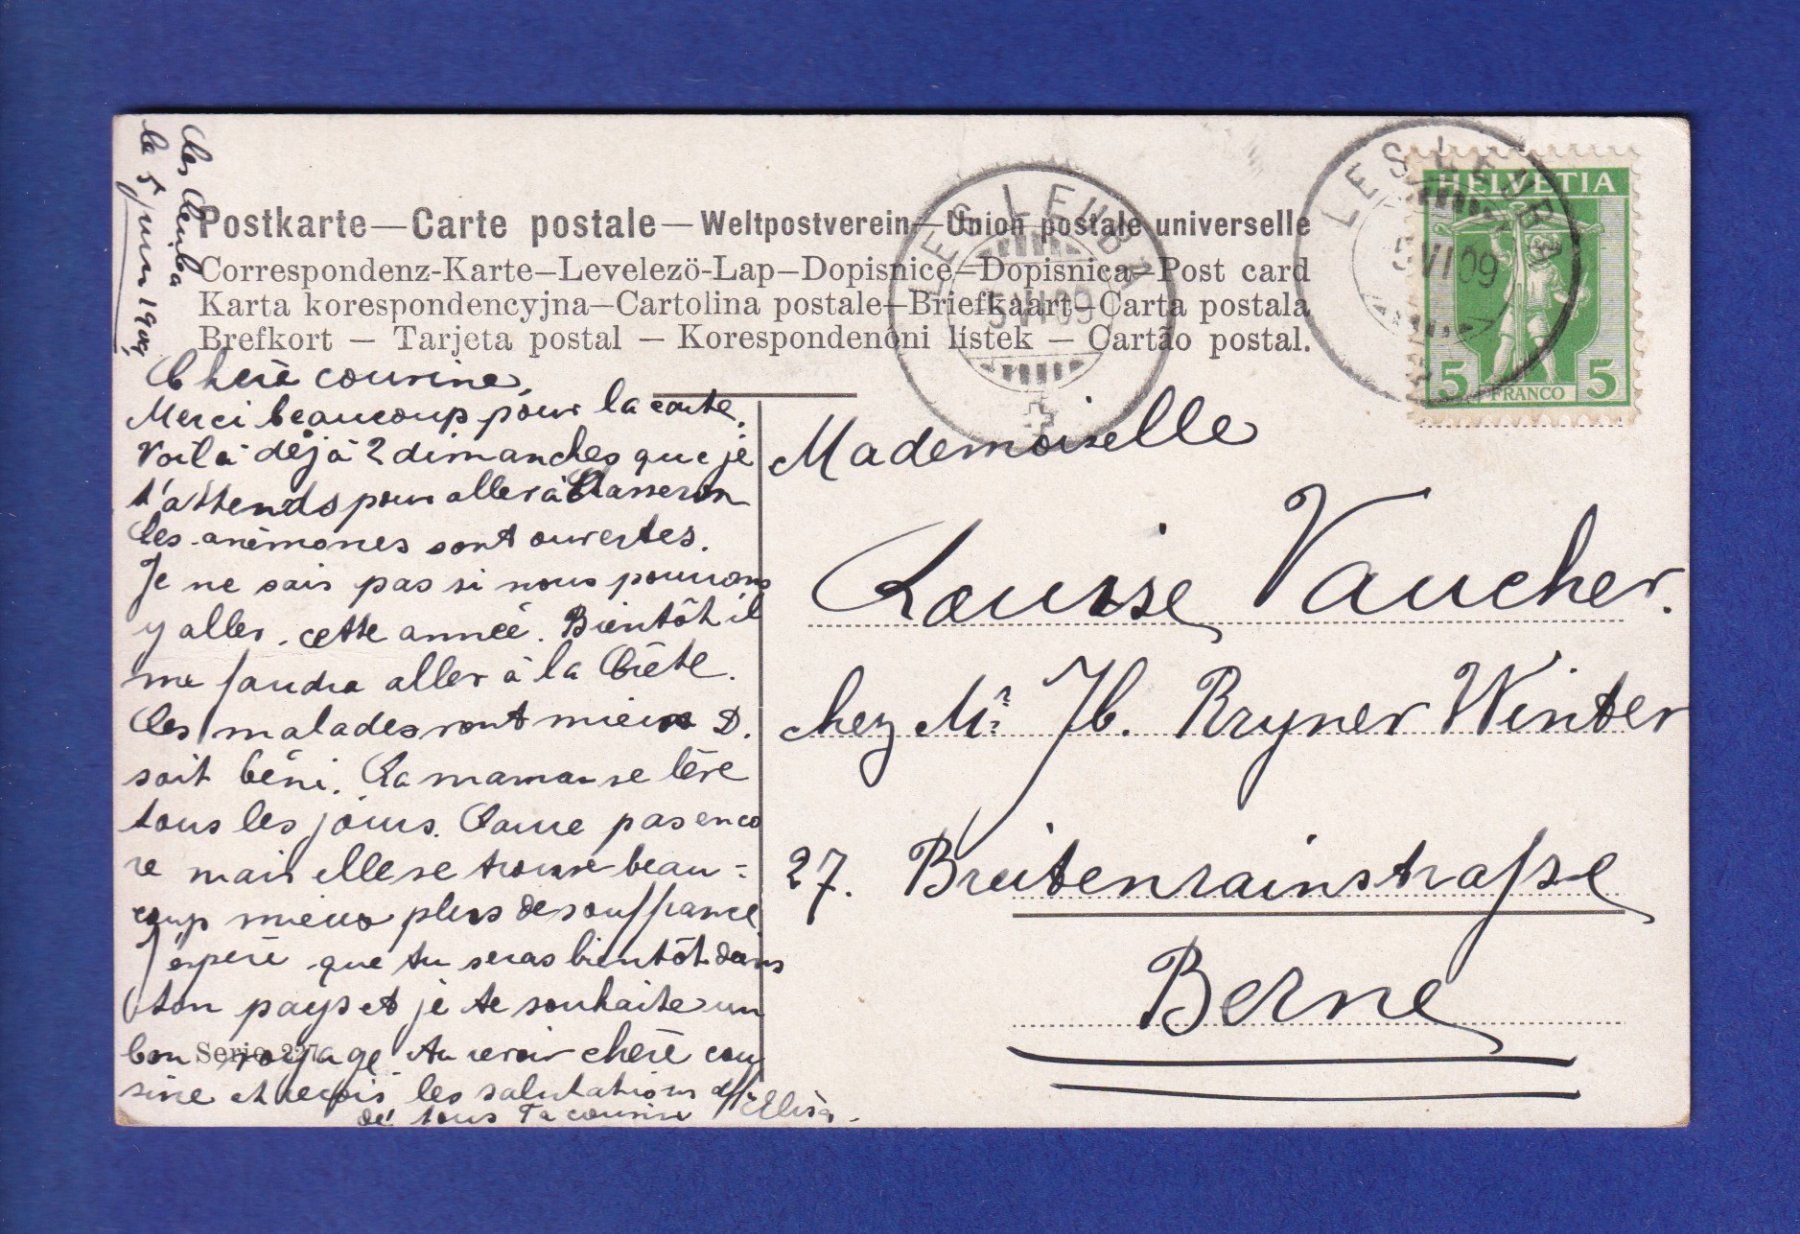 Les Leuba
le 5 juin 1909
Postkarte—Carte postale—Weltpostverein—Union postale universelle
Correspondenz-Karte—Levelezö-Lap—Dopisnice—Dopisnica—Post card
Karta korespondencyjna—Cartolina postale—Briefkaart—Carta postala
Brefkort — Tarjeta postal — Korespondenčni lístek — Cartão postal.
LES LEUBA
5 VI 09
LES LEUBA
5 VI 09
HELVETIA
5 FRANCO 5
Chère cousine,
Merci beaucoup pour la carte.
Voilà déjà 2 dimanches que je
t'attends pour aller à Chasseron
les anémones sont ouvertes.
Je ne sais pas si nous pourrons
y aller cette année. Bientôt il
me faudra aller à la
Les malades vont mieux D.
soit béni. La maman se lève
tous les jours. pas enco
re mais elle se trouve beau=
coup mieux plus de souffrance
J'espère que tu seras bientôt dans
ton pays et je te souhaite un
bon voyage. Au revoir chère cou
sine et reçois les salutations aff.
de tous Ta cousine Elisa.
Serie 227
Mademoiselle
Louise Vaucher.
chez Mr. Jb. Ryner Winter
27. Breitenrainstrasse
Berne